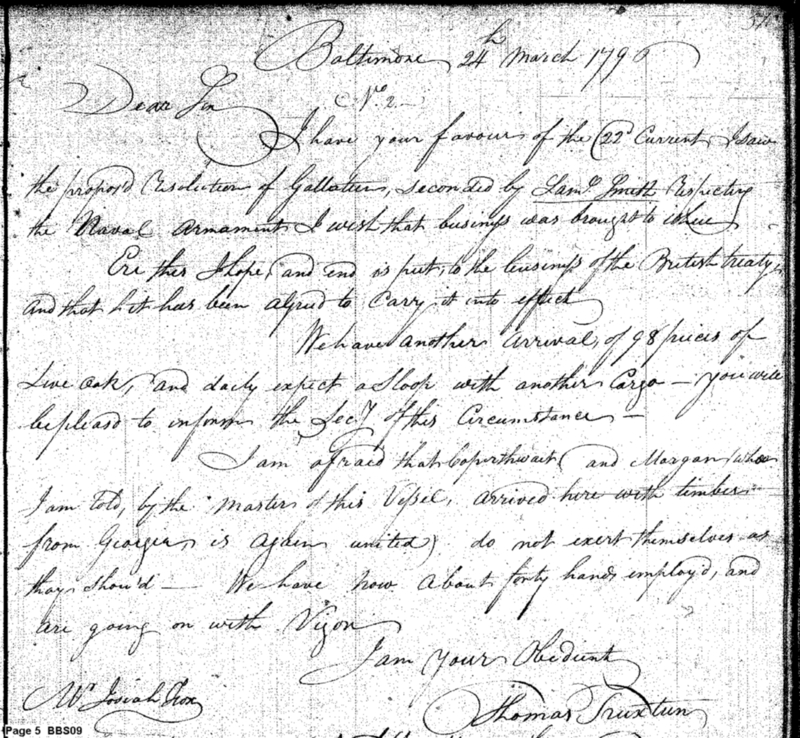 Baltimore 24th March 1796
Dear Sir No 2
I have your favour of the 22d Current, I saw
the propos'd resolution of Gallatin, seconded by Saml Smith respecting
the Naval armament I wish that business was brought to issue
Ere this I hope, and end is put, to the business of the British treaty,
and that it has been agreed to Carry it into effect
We have another arrival, of 98 pieces of
Live oak, and daily expect a Sloop with another Cargo — you will
be pleasd to inform the Secy of this Circumstance —
I am afraid that Coperthwait and Morgan (who
I am told, by the Master of this Vessel, arrived here with timber
from Georgia, is again united) do not exert themselves as
they shou'd — We have now about forty hands employ'd, and
are going on with Vigor
I am your Obedient
Mr Josiah Fox
Thomas Truxtun
Page 5 BBS09